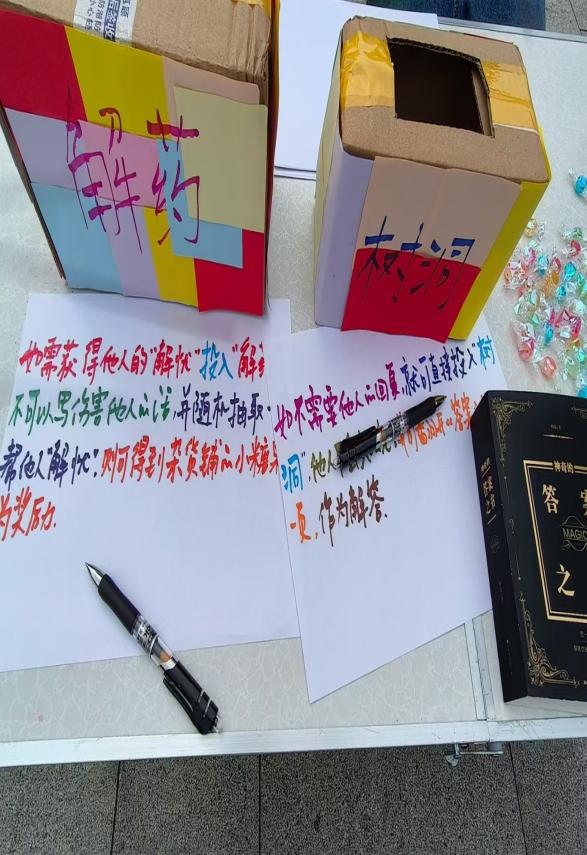 解药
树洞
如需获得他人的"解忧"投入"解
不可以写伤害他人的话,并随机抽取
帮他人"解忧",则可得到杂货铺的小糖果
为奖励.
如不需要他人的回复,就可直接投入"树
洞".他人
的答案
一页,作为解答.
神奇的
答案
MAGIC
之